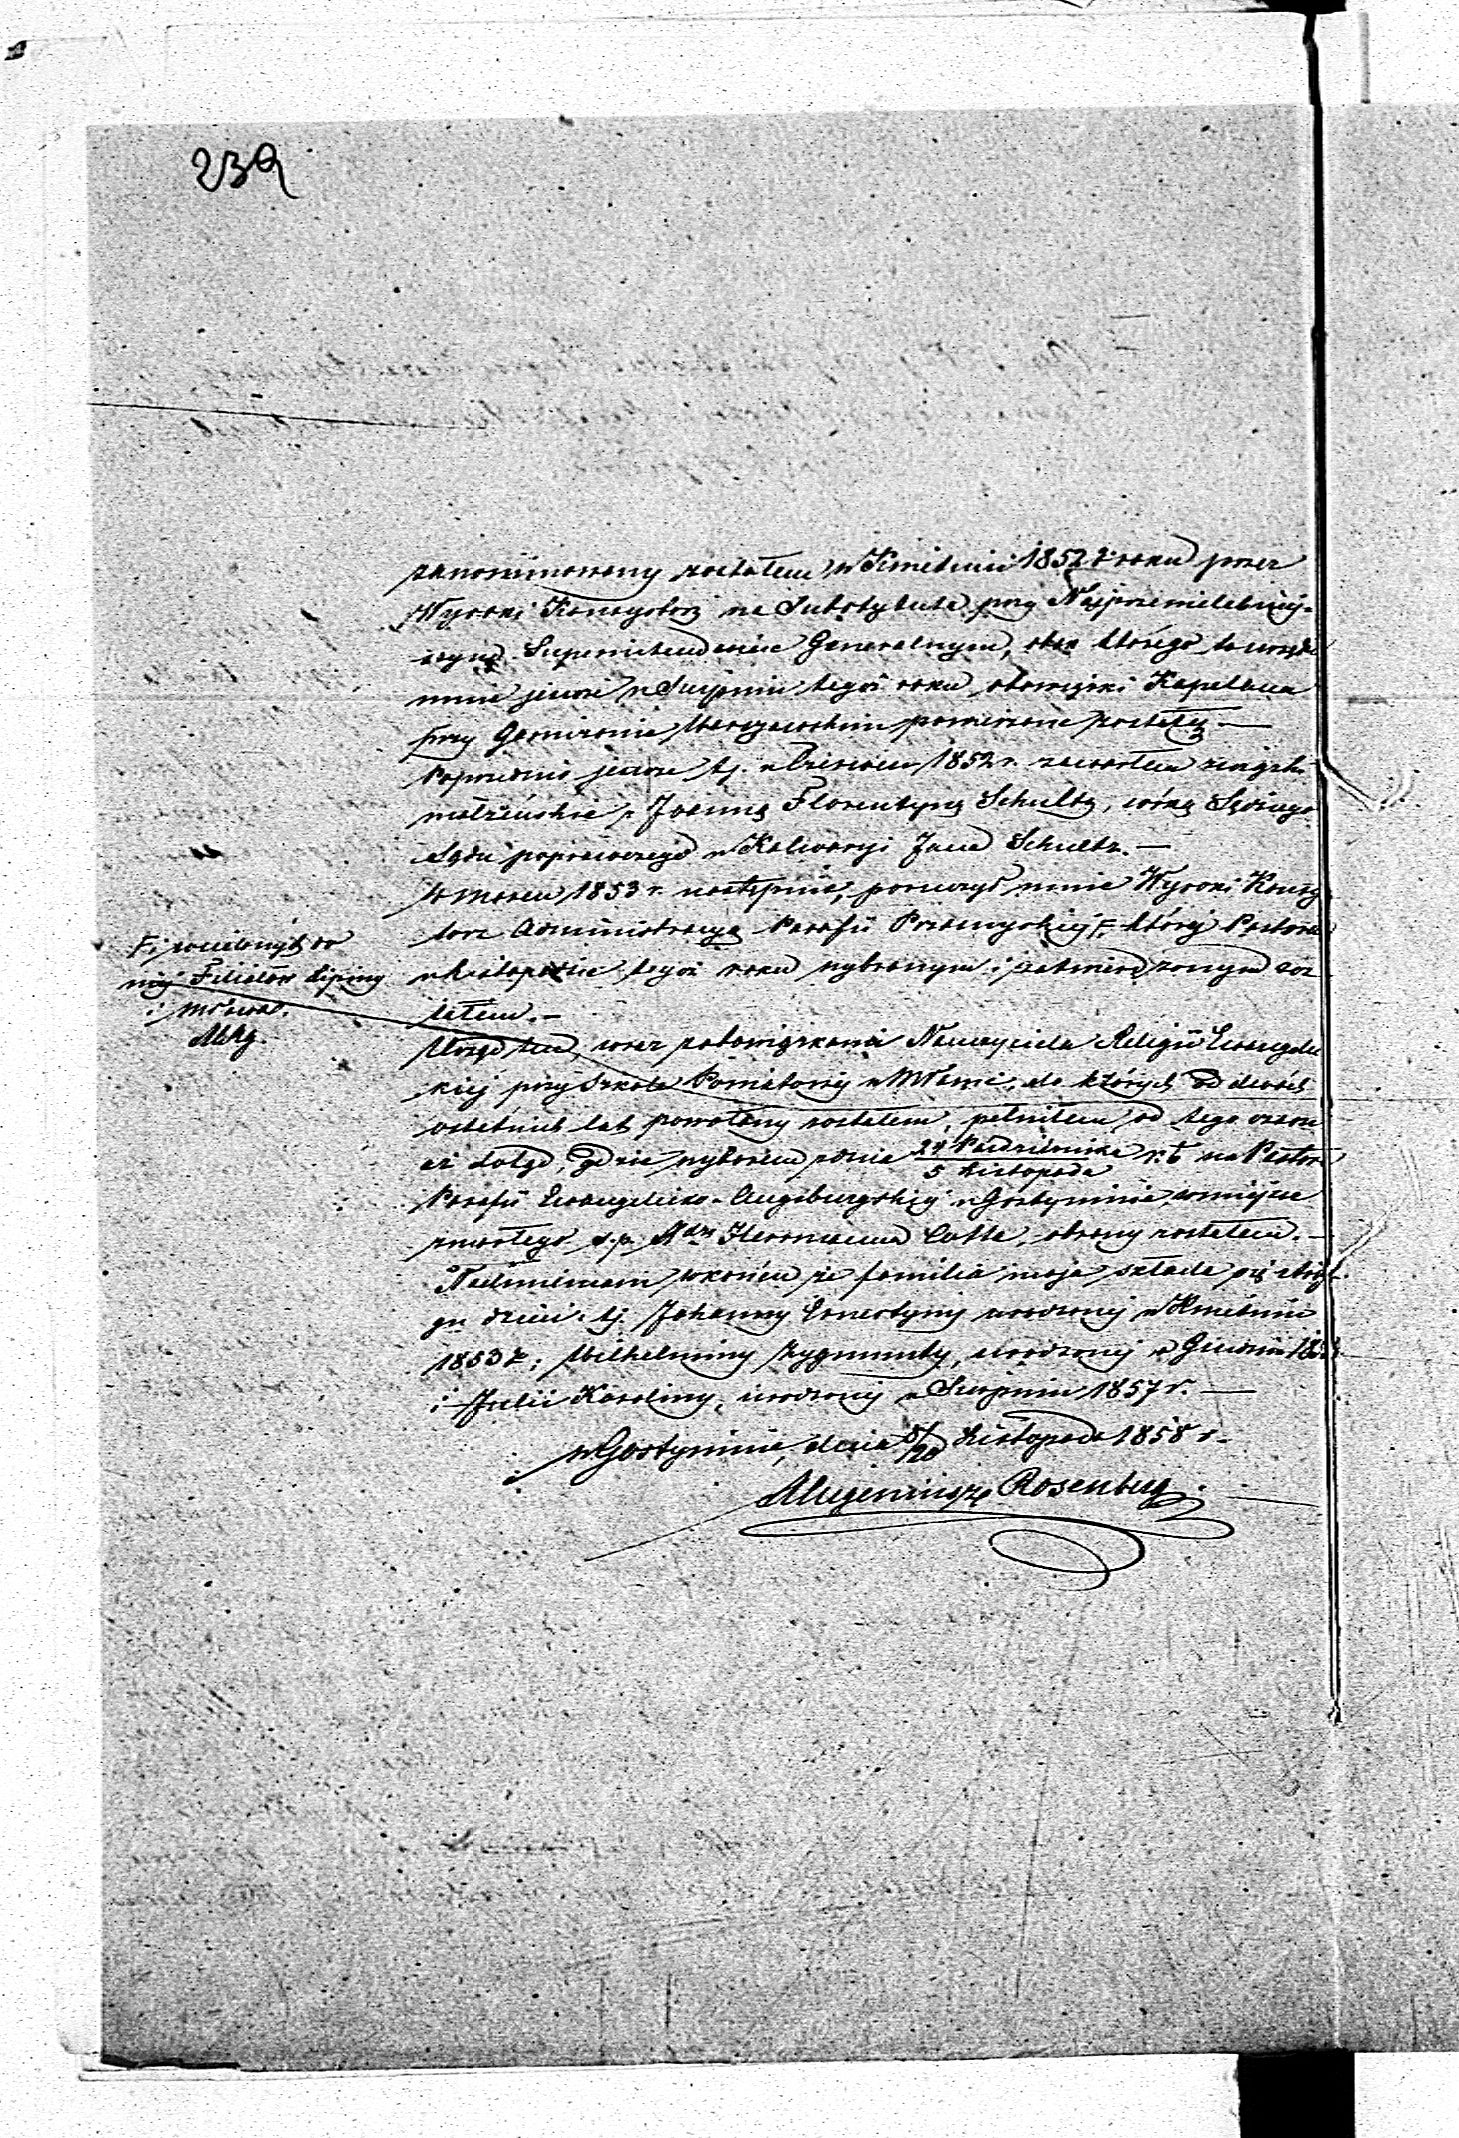 239
zanominowany zostałem w Kwietniu 1852 r. roku przez
Wysoki Konsystorz na Substytuta przy Najprzewielebniej-
szym Superintendencie Generalnym, obok którego to urzędu
mnie jeszcze w Sierpniu tegoż roku, obowiązki Kapelana
przy Garnizonie Warszawskim powierzone zostały.—
Poprzednio jeszcze tj. w Czerwcu 1852 r. zawarłem związki
małżeńskie z Joanną Florentyną Schultz, córką Sędziego
Sądu poprawczego w Kalwaryi Jana Schultz.—
W marcu 1853 r. następnie, poruczył mnie Wysoki Konsy
storz Administracyą Parafii Przasnyskiej F, której Pastorem
w Listopadzie tegoż roku wybranym i zatwierdzonym zos
tałem.—
F, i wcielonych do
niej Filiałów Lipiny
i Mława.
Urząd ten, wraz z obowiązkami Nauczyciela Religii Ewangelic
kiej przy Szkole Powiatowej w Mławie, do których od dwóch
ostatnich lat powołany zostałem, pełniłem od tego czasu
aż dotąd, gdzie wyborem z dnia 24 Października
5 Listopada r. b. na Pastora
Parafii Ewangelicko-Augsburgskiej w Gostyninie, w miejsce
zmarłego ś. p. Hermana, obrany zostałem.—
Nadmieniam w końcu że familia moja składa się z troj-
ga dzieci. tj. Johanny Ernestyny urodzonej w Kwietniu
1853 r; Wilhelminy Zygmunty, urodzonej w Grudniu
i Julii Karoliny, urodzonej w Sierpniu 1857 r.—
w Gostyninie, dnia 8/20 Listopada 1858 r.
Eugeniusz Rosenberg.